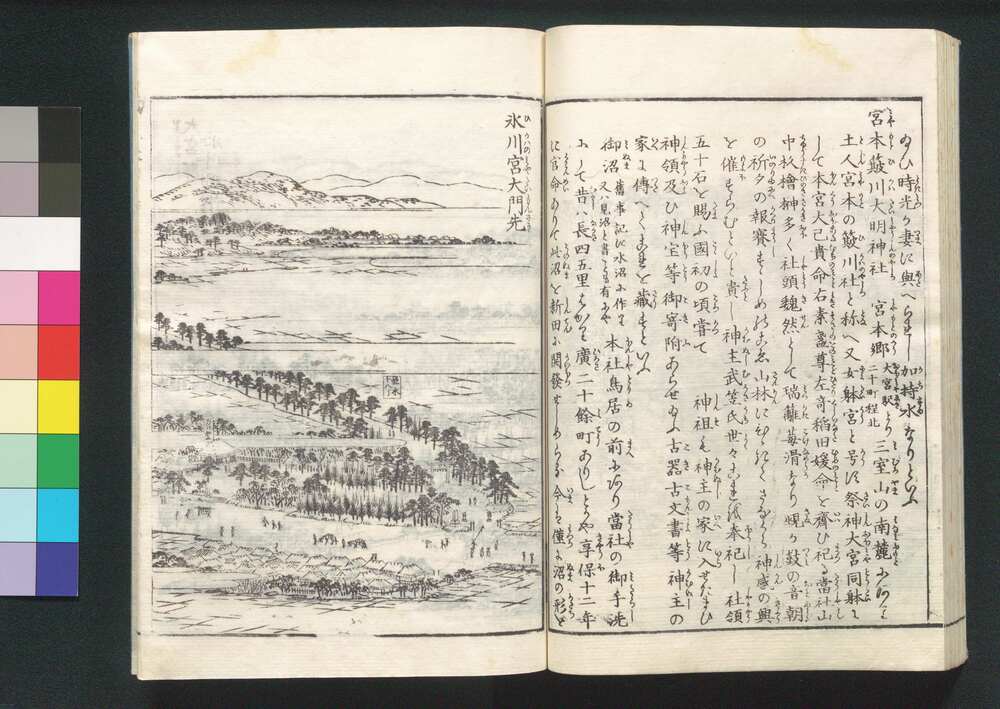 ゐひ時光の妻に與へられし加持水なりといふ
宮本簸川大明神社 宮本郷 大宮駅より 二十町程北 三室山の南麓にあり
土人宮本の簸川社と称へ又女躰宮と号す祭神大宮同躰に
して本宮大己貴命右素盞尊左奇稲田媛命を齋ひ祀る當社山
中杦檜榊多く社頭巍然として瑞籬苺滑なり 鼓の音朝
の祈夕の報賽 山林に 神感の興
を催すらむといと貴し神主武笠氏世々これを奉祀し社領
五十石を賜ふ國初の頃嘗て 神祖も神主の家に入せたまひ
神領及ひ神宝等御寄附あらせゐふ古器古文書等神主の
家に傳へてこれを蔵すといふ
御沼 舊事記に水沼に作る 又八見沼と書るも有にや 本社鳥居の前にあり當社の御手洗
にして昔ハ長四五里 廣二十餘町ありしとや享保十二年
に官命ありて此沼を新田に開發せしめらる今は僅に沼の形を
氷川宮大門先